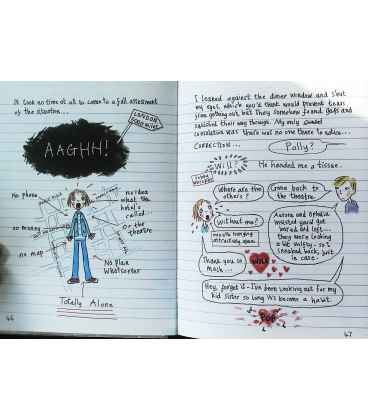 It took no time at all to come to a full assessment
of the situation...
LONDON
AAGHH!
No phone
no money
no map
no idea
what the
hotel's
called...
Or the
theatre
No plan
Whatsoever
Totally Alone
46
I leaned against the diner window and shut
my eyes, which you'd think would prevent tears
from getting out, but they somehow found gaps and
squished their way through. My only
consolation was there was no one there to notice...
CORRECTION...
Polly?
Will?
He handed me a tissue.
Where are the
others?
Gone back to
the theatre.
Without me?
mouth hanging
attractively open
Aurora and Ophelia
insisted you'd got
bored and left...
they were looking
a bit shifty - so I
sneaked back, just
in case.
Thank you so
much...
Hey, forget it - I've been looking out for my
kid sister so long it's become a habit.
POP
47